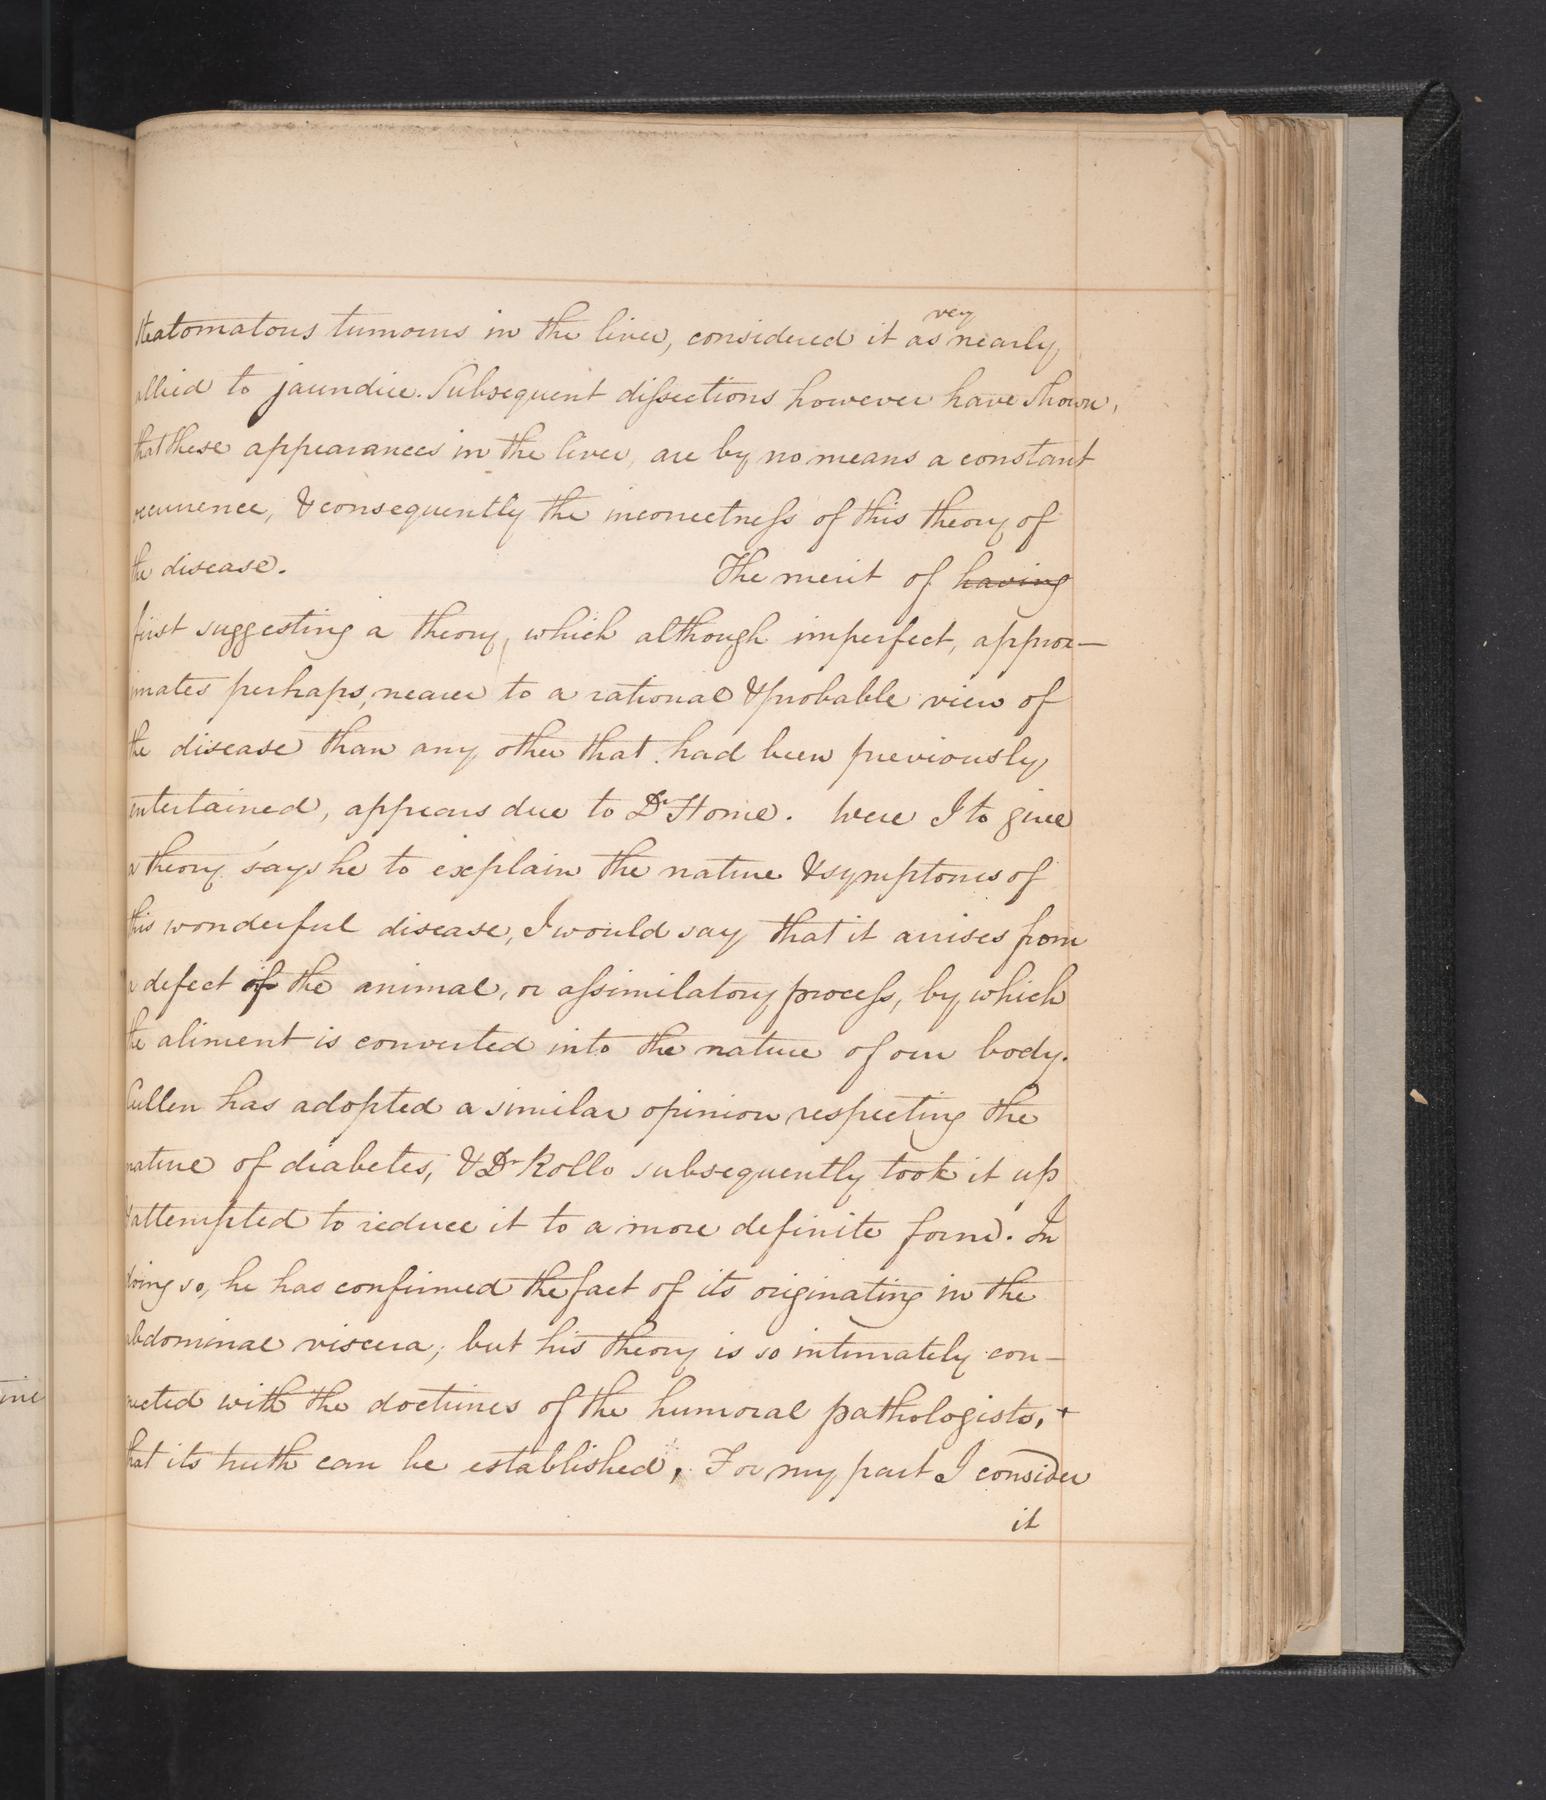 steatomatous tumours in the liver, considered it as very nearly
allied to jaundice. Subsequent dissections however have shown,
that these appearances in the liver, are by no means a constant
occurrence, & consequently the incorrectness of this theory of
the disease. The merit of having
first suggesting a theory, which although imperfect, approx—
imates perhaps, nearer to a rational & probable view of
the disease than any other that had been previously
entertained, appears due to Dr Home. Were I to give
a theory says he to explain the nature & symptoms of
this wonderful disease, I would say that it arrises from
a defect of the animal, or assimilatory process, by which
the aliment is converted into the nature of our body.
Cullen has adopted a similar opinion respecting the
nature of diabetes, & Dr Rollo subsequently took it up
& attempted to reduce it to a more definite form. In
doing so, he has confirmed the fact of its originating in the
abdominal viscera; but his theory is so intimately con—
nected with the doctrines of the humoral pathologists, +
that its truth can be established. For my part I consider
it